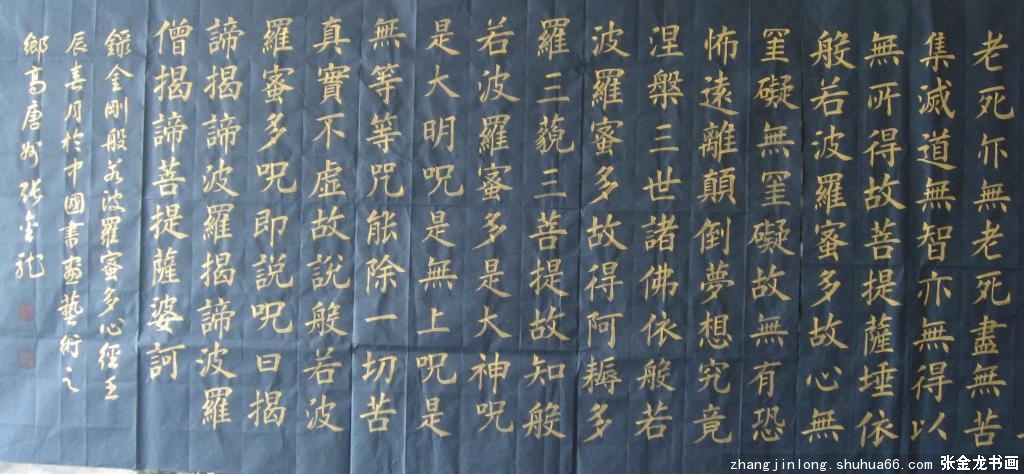 老死亦無老死盡無苦
集滅道無智亦無得以
無所得故菩提薩埵依
般若波羅蜜多故心無
罣礙無罣礙故無有恐
怖遠離顛倒夢想究竟
涅槃三世諸佛依般若
波羅蜜多故得阿耨多
羅三藐三菩提故知般
若波羅蜜多是大神呪
是大明呪是無上呪是
無等等咒能除一切苦
真實不虛故說般若波
羅蜜多呪即說呪曰揭
諦揭諦波羅揭諦波羅
僧揭諦菩提薩婆訶
錄金剛般若波羅蜜多心經壬
辰春月於中國書畫藝術之
鄉高唐州張金龍
zhangjinlong.shuhua66.com 张金龙书画